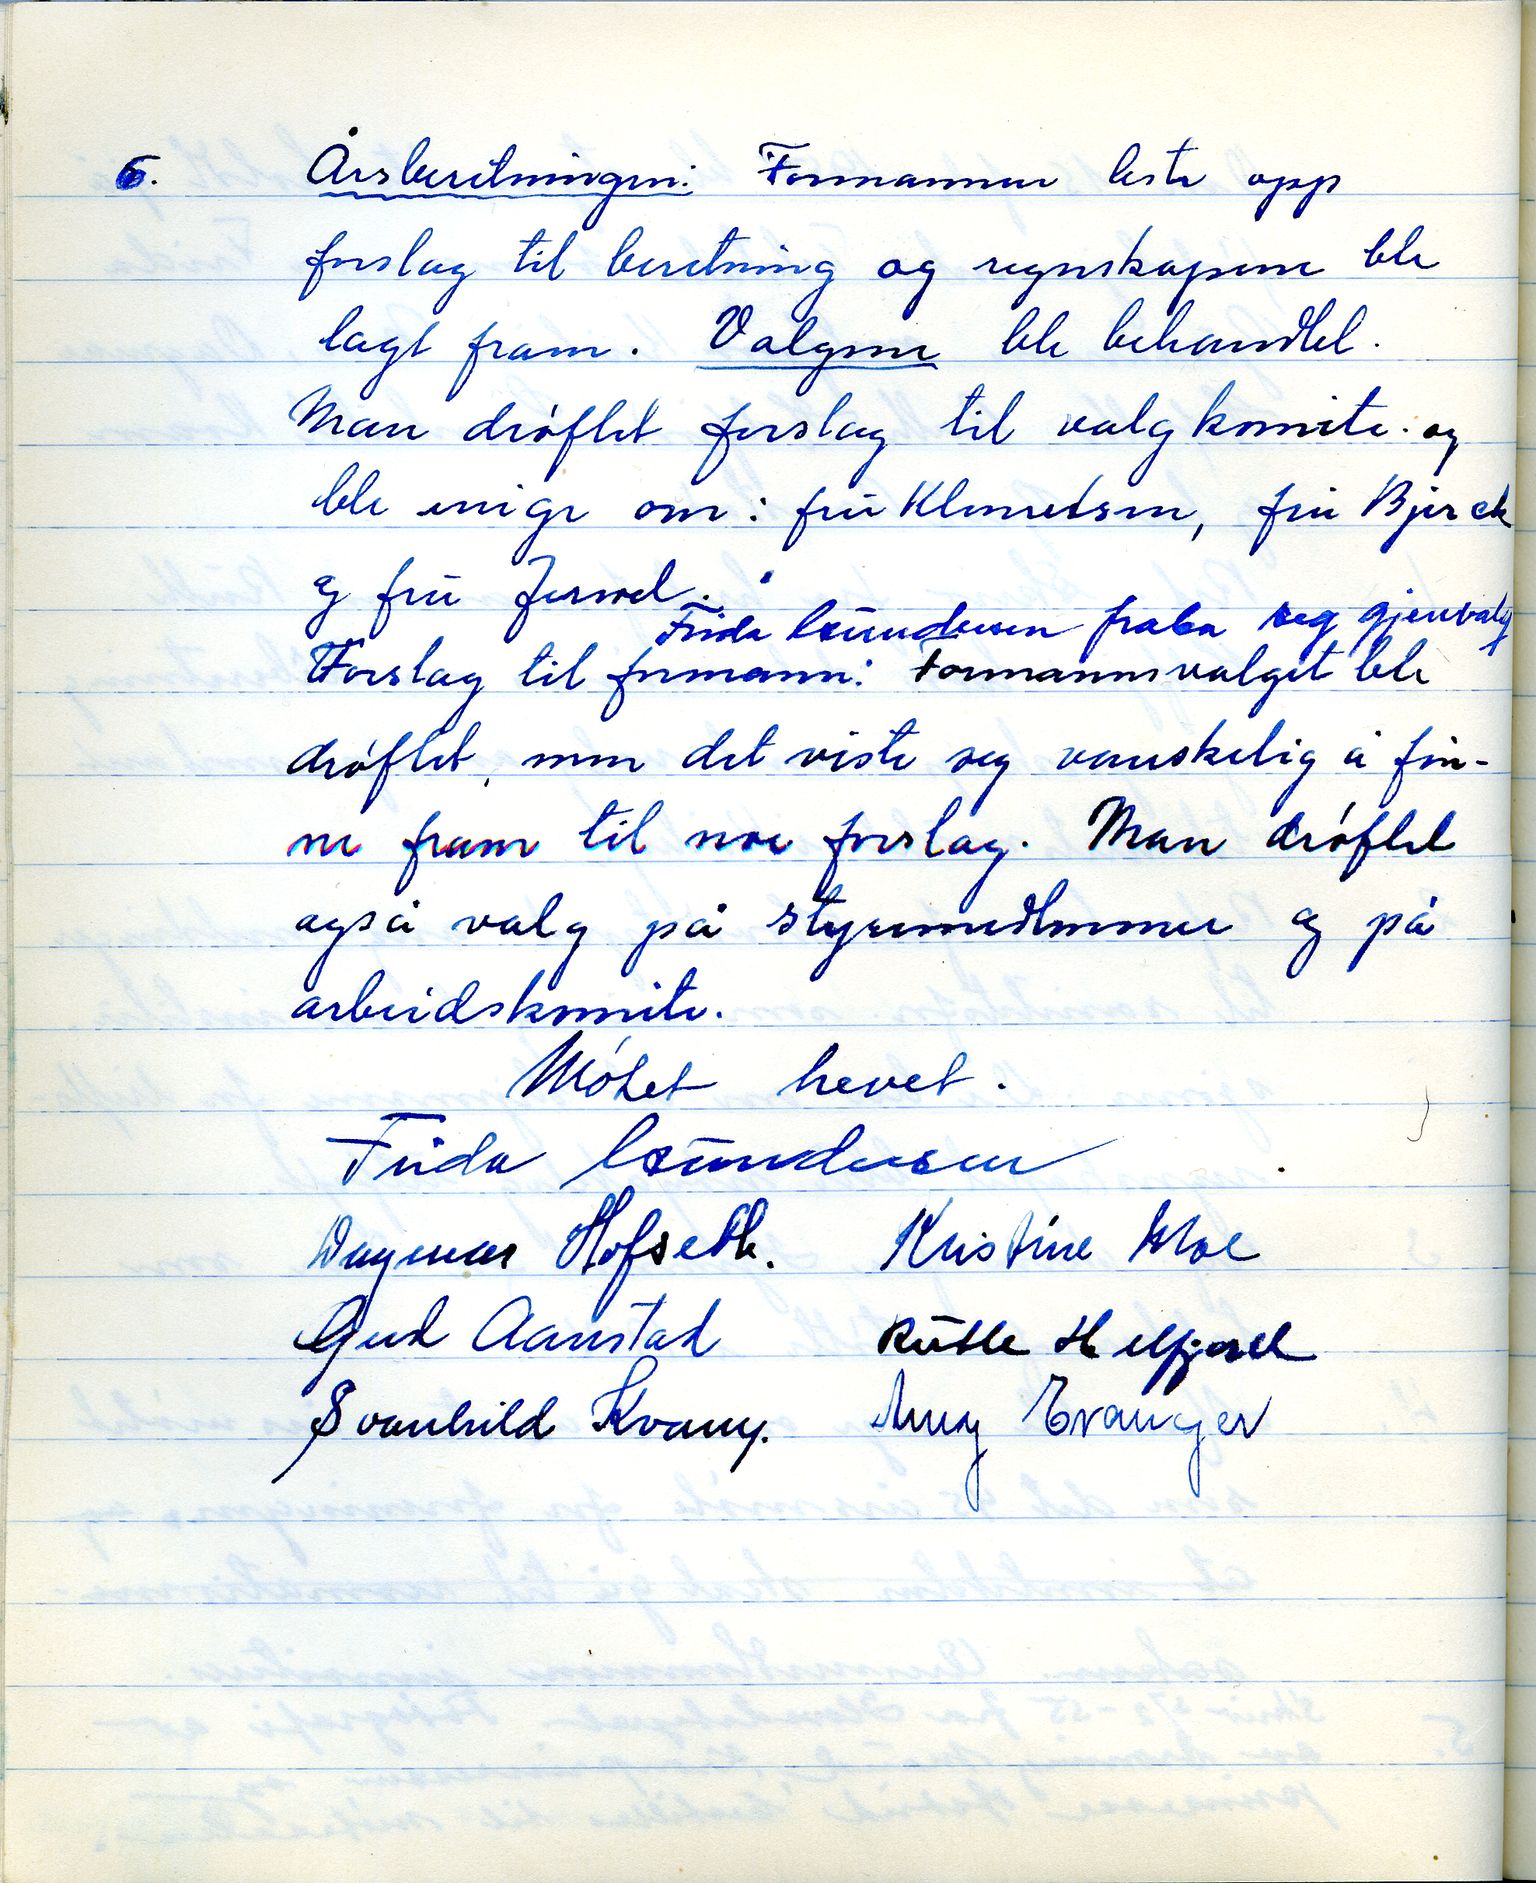 6. Årsberetningen: Formannen leste opp
forslag til beretning og regnskapene ble
lagt fram. Valgene ble behandlet.
Man drøftet forslag til valgkomite og
ble enige om: fru Klemetsen, fru Bjerck
og fru
Frida Gundersen fraba seg gjenvalg
Forslag til formann: Formannsvalget ble
drøftet, men det viste seg vanskelig å fin-
ne fram til noe forslag. Man drøftet
også valg på styremedlemmer og på
arbeidskomite.
Møtet hevet.
Frida Gundersen
Dagmar Hofseth. Kristine Moe
Gud Aanstad Ruth Helfjord
Svanhild Kvam. Amy Evanger